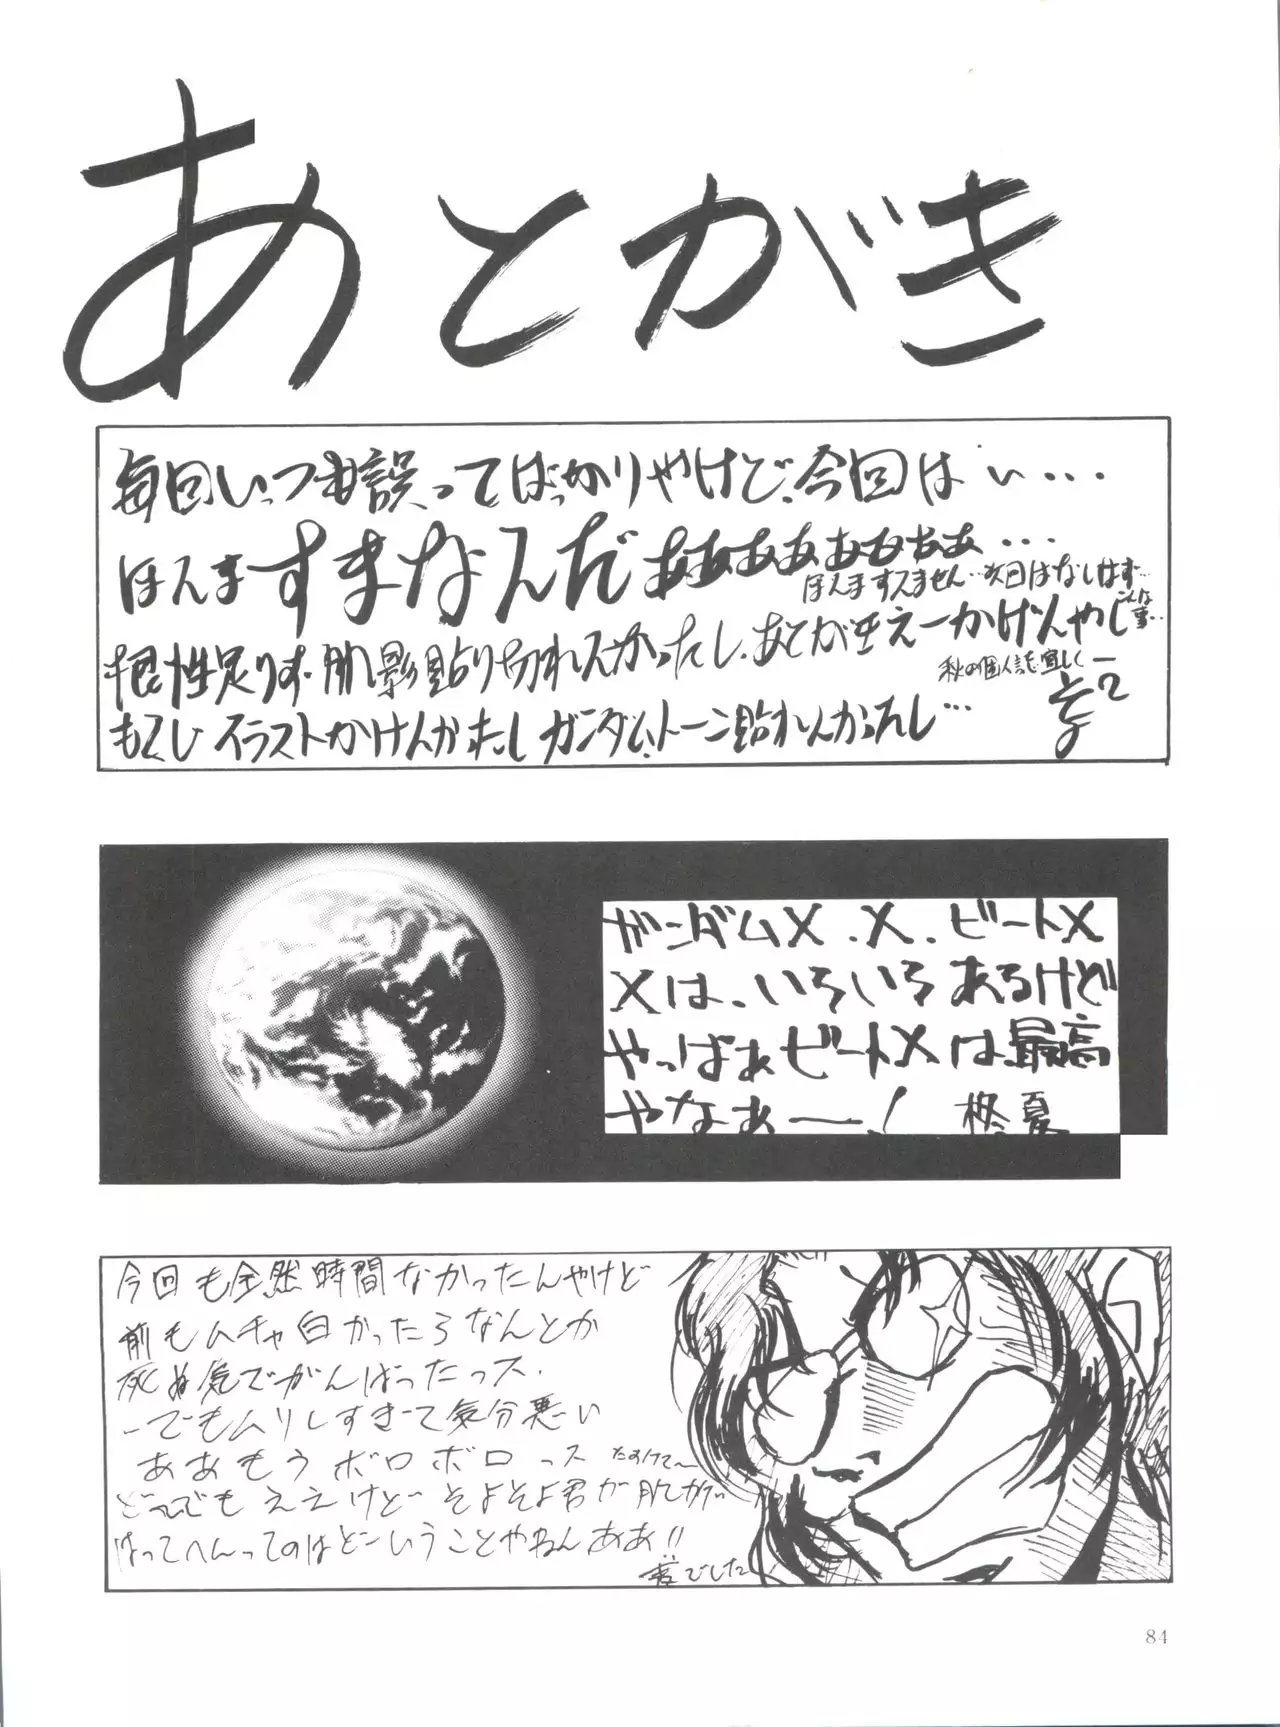 あとがき
毎回いっつも誤ってばっかりやけど、今回はい・・・
ほんますまなんだぁああああああぁ・・・
ほんますんません…次回はなしはず…こんな事…
根性足りず肌影貼り切れんかったし、あとがきえーかげんやし
秋の個人誌宜しくー
もくじイラストかけんかったしガンダム、トーン貼れんかったし…
ガンダムX.X.ビートX
Xは、いろいろあるけど
やっぱぁビートXは最高
やなぁー! 柊夏
今回も全然時間なかったんやけど
前もムチャ白かったろなんとか
死ぬ気でがんばったっス.
ーでもムリしすぎて気分悪い
ああもうボロボロっス たすけて〜
どっでもええけど そよそよ君が肌かげ
はってへんってのはどーいうことやねんああ!!
でした
84